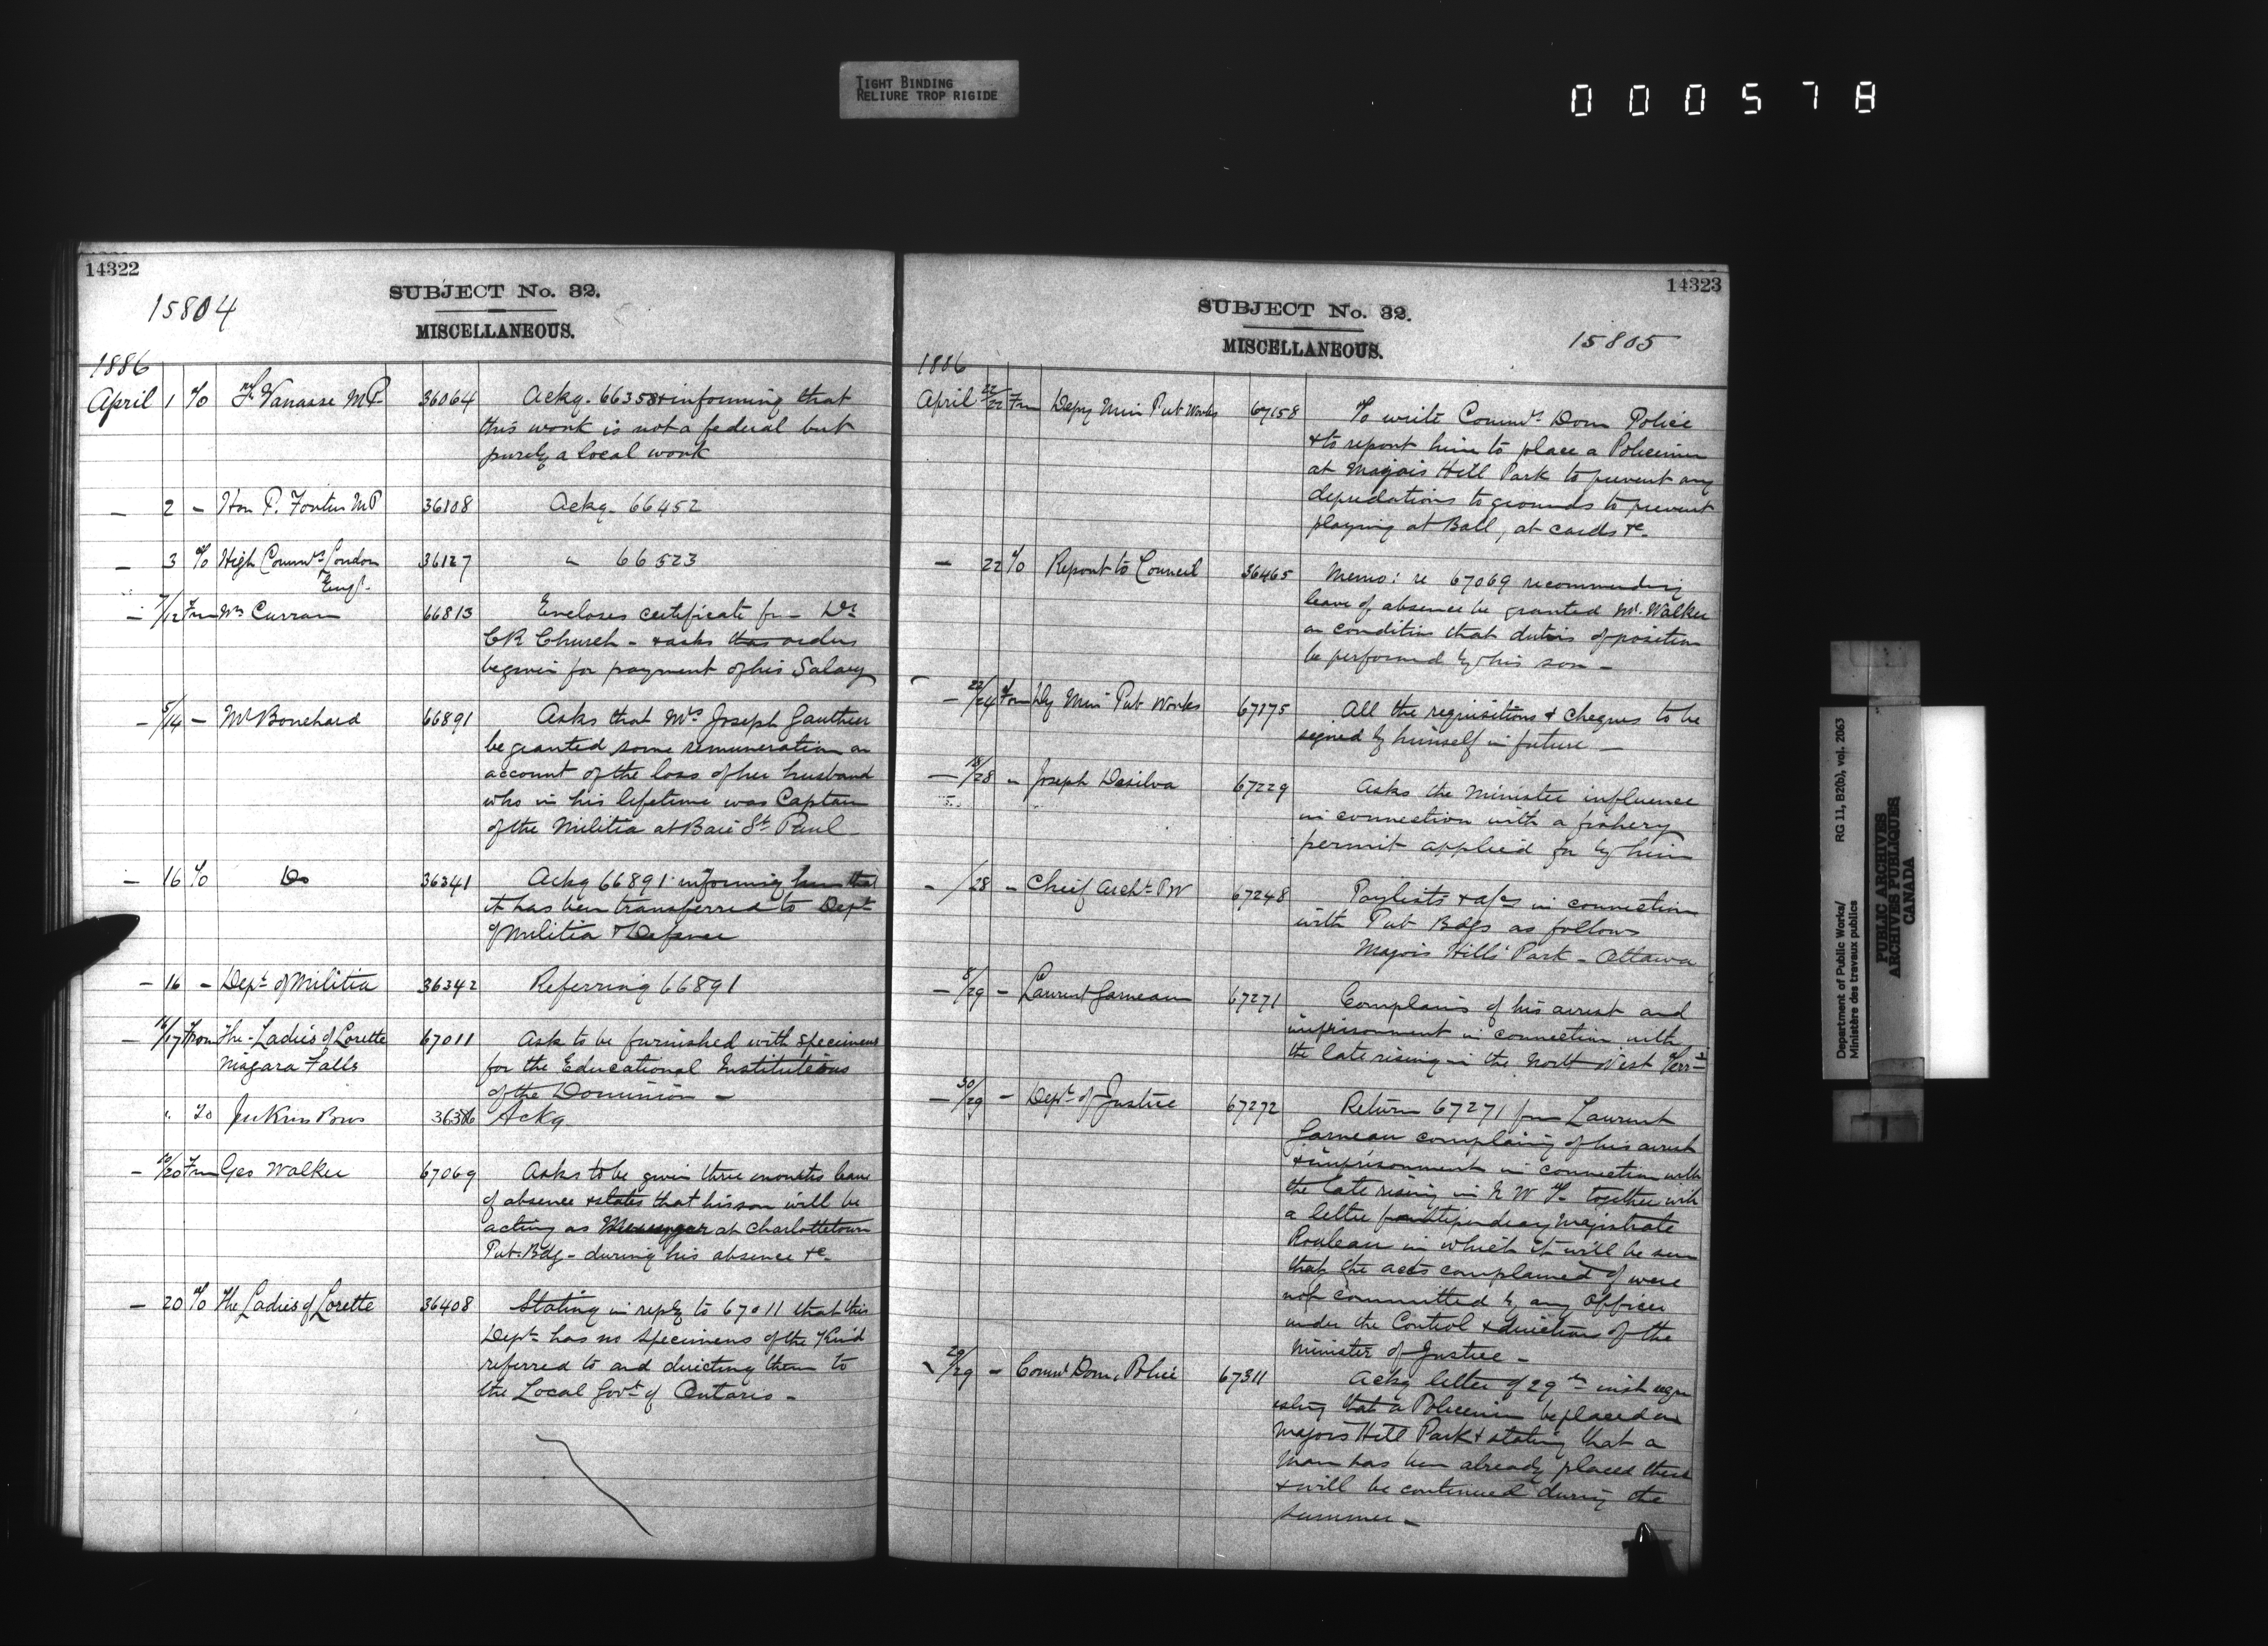 TIGHT BINDING
RELIURE TROP RIGIDE
000578
14322
15804
SUBJECT No. 32.
MISCELLANEOUS.
1886
April 1 To F. Vanasse MP 36064 Ackg. 66358 & informing that
this work is not a federal but
purely a local work
— 2 - Hon P. Fortin MP 36108 Ackg. 66452
— 3 To High Commr London 36127 " 66523
Engl.
— 7/12 Frm Wm Curran 66813 Encloses certificate fr - Dr
CR Church - & asks that orders
be given for payment of his Salary
— 5/14 - Mr Bouchard 66891 Asks that Mrs Joseph Gauthier
be granted some remuneration on
account of the loss of her husband
who in his lifetime was Captain
of the Militia at Baie St. Paul
— 16 To Do 36341 Ackg 66891 informing him that
it has been transferred to Dept
of Militia & Defence
— 16 - Dept of Militia 36342 Referring 66891
— 16/17 From The Ladies of Lorette 67011 Ask to be furnished with specimens
Niagara Falls for the Educational Institutions
of the Dominion -
" To Jenkins Bros Ackg
— 10/20 Frm Geo Walker 67069 Asks to be given three months leave
of absence & states that his son will be
acting as Messenger at Charlottetown
Pub. Bdg - during his absence &c.
— 20 To The Ladies of Lorette 36408 Stating in reply to 67011 that this
Dept has no specimens of the Kind
referred to and directing them to
the Local Govt of Ontario -
14323
SUBJECT No. 32.
MISCELLANEOUS.
15805
1886
April 22/22 Frm Depy Min Pub Works 67158 To write Commr Dom Police
& to report him to place a Policeman
at Majors Hill Park to prevent any
depredations to grounds to prevent
playing at Ball, at cards &c.
— 22 To Report to Council 36465 Memo: re 67069 recommending
leave of absence be granted Mr. Walker
on condition that duties of position
be performed by his son -
— 22/24 From Dy Min Pub Works 67175 All the requisitions & cheques to be
signed by himself in future -
— 18/28 - Joseph Desilva 67229 Asks the Minister influence
in connection with a fishery
permit applied for by him
- /28 - Chief Archt PW 67248 Paylists & a/cs in connection
with Pub Bdgs as follows
Majors Hill Park - Ottawa
— 8/29 - Laurent Garneau 67271 Complains of his arrest and
imprisonment in connection with
the late rising in the North West Terrs
— 30/29 - Dept of Justice 67272 Return 67271 from Laurent
Garneau complaing of his arrest
& imprisonment in connection with
the late rising in N W T. together with
a letter from Stipendiary Magistrate
Rouleau in which it will be seen
that the acts complained of were
not committed by any Officer
under the Control & direction of the
Minister of Justice -
29/29 - Commr Dom. Police 67311 Ackg letter of 29th inst requ
esting that a Policeman be placed on
Majors Hill Park & stating that a
man has been already placed there
& will be continued during the
summer -
Department of Public Works/ RG 11, B2(b), vol. 2063
Ministère des travaux publics
PUBLIC ARCHIVES
ARCHIVES PUBLIQUES
CANADA